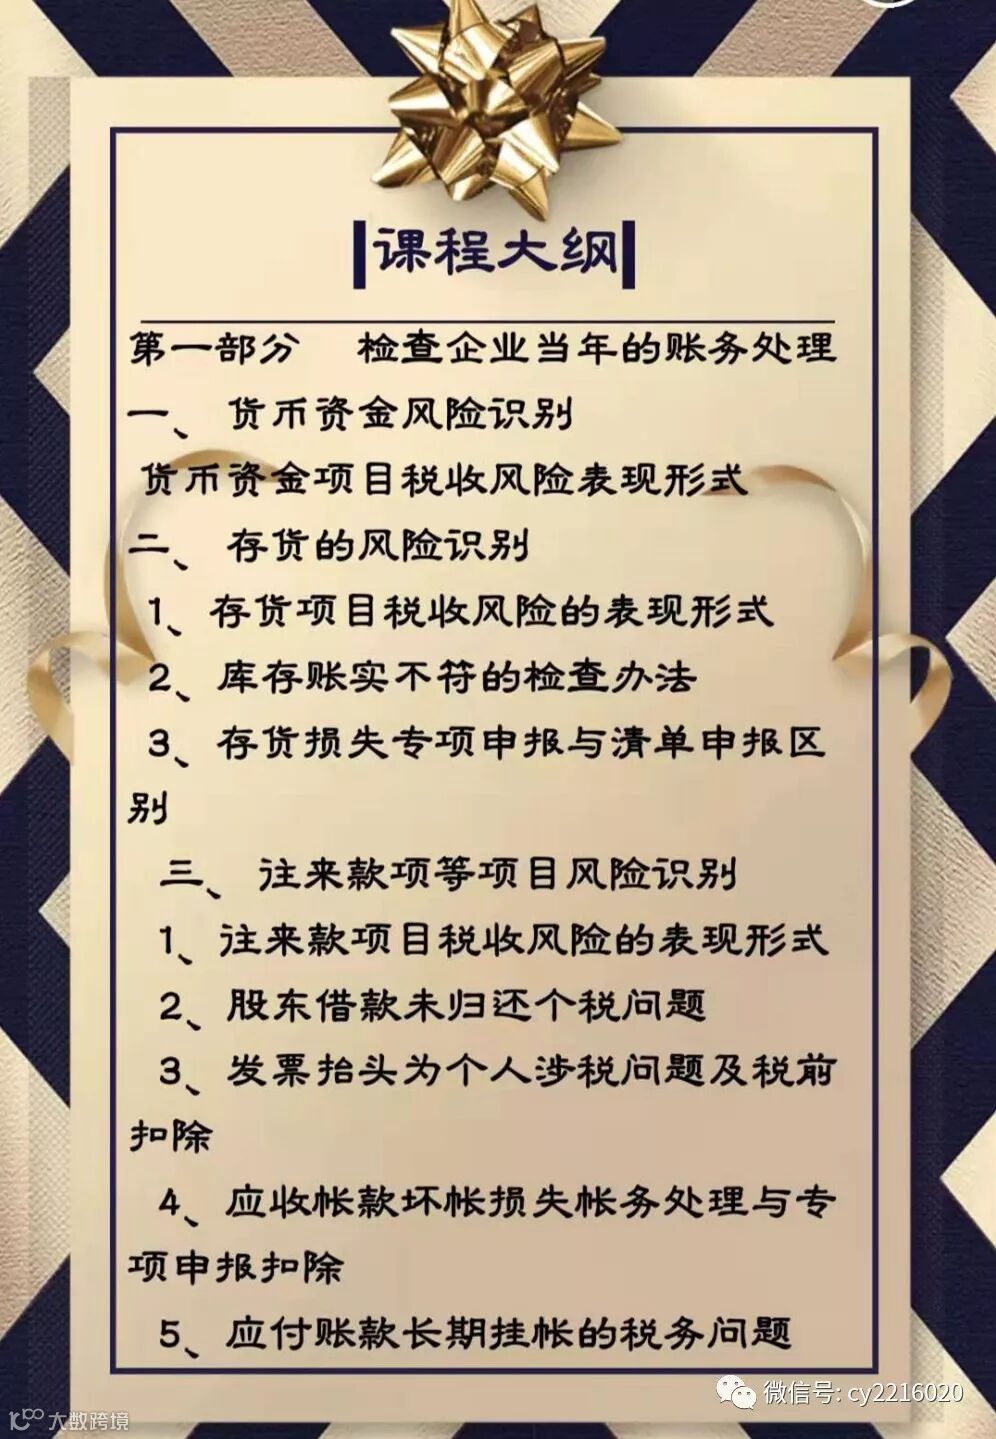 课程大纲
第一部分 检查企业当年的账务处理
一、 货币资金风险识别
货币资金项目税收风险表现形式
二、 存货的风险识别
1、存货项目税收风险的表现形式
2、库存账实不符的检查办法
3、存货损失专项申报与清单申报区
别
三、 往来款项等项目风险识别
1、往来款项目税收风险的表现形式
2、股东借款未归还个税问题
3、发票抬头为个人涉税问题及税前
扣除
4、应收帐款坏帐损失帐务处理与专
项申报扣除
5、应付账款长期挂帐的税务问题
微信号: cy2216020
大数跨境